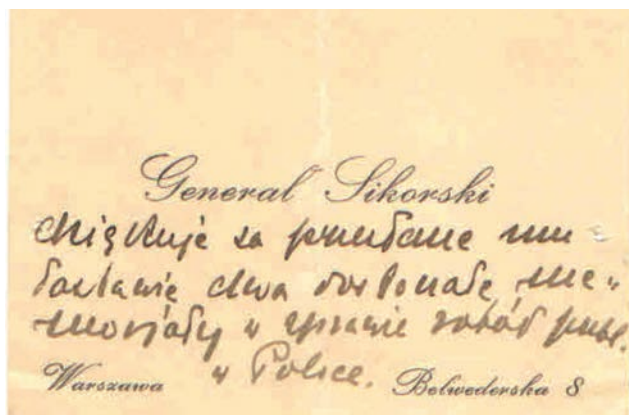 Generał Sikorski
dziękuje za przesłane mu
łaskawie dwa doskonałe me-
morjały w sprawie robót publ.
w Polsce.
Warszawa Belwederska 8